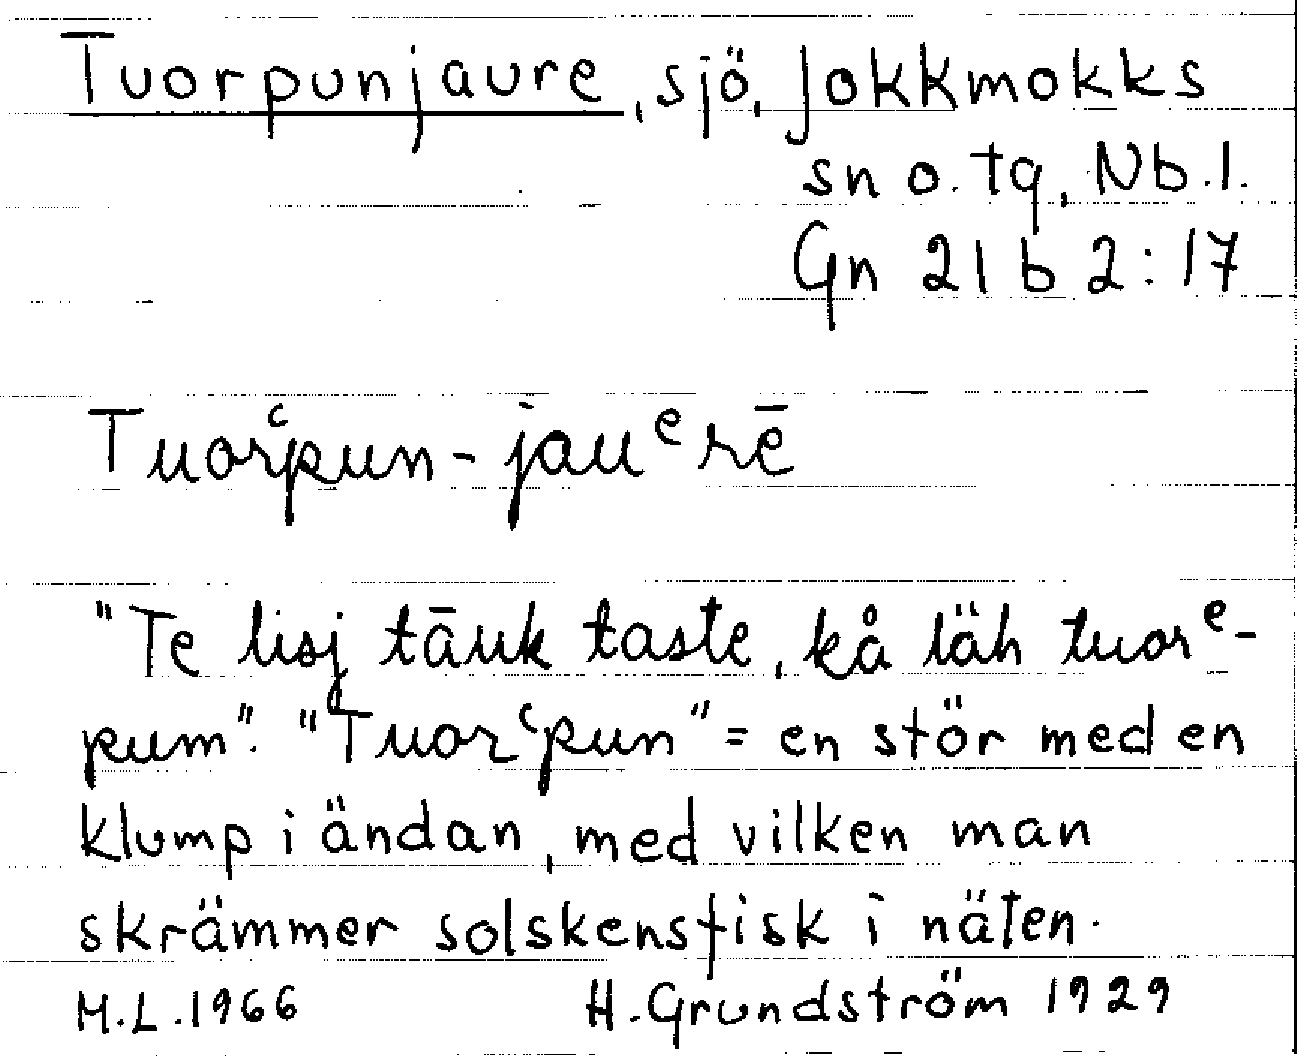 Tuorpunjaure, sjö, Jokkmokks
sn o. tg, Nb.l.
Gn 21 b 2:17
Tuorʿpun-jauᵉrē
"Te lisj tāuk taste, kå läh tuorᵉ-
pum". "Tuorʿpun" = en stör med en
klump i ändan, med vilken man
skrämmer solskensfisk i näten.
M.L. 1966 H. Grundström 1929